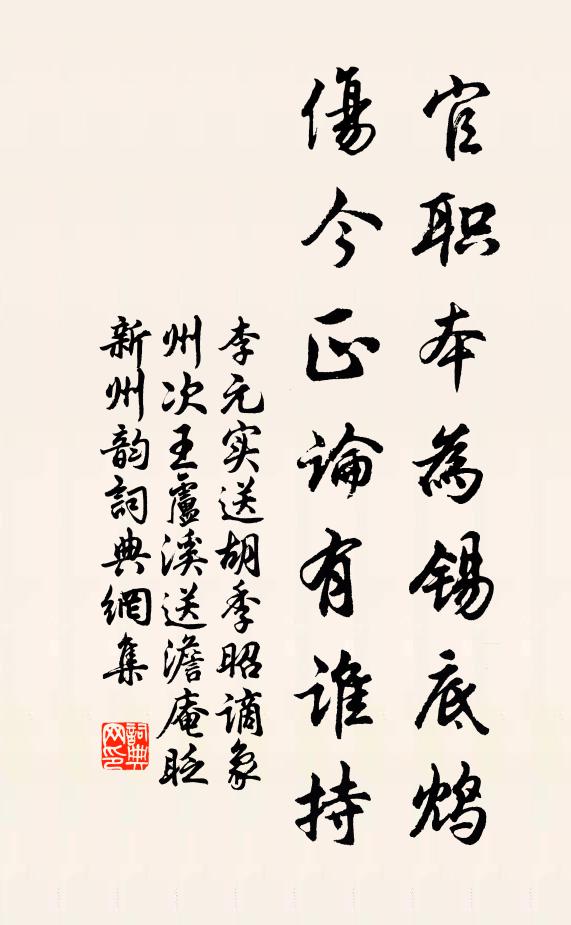 官职本為锡底
傷今正論有谁持
李元实送胡季昭谪象
州次王盧溪送澹庵眨
新州韵詞典網集
詞典网印